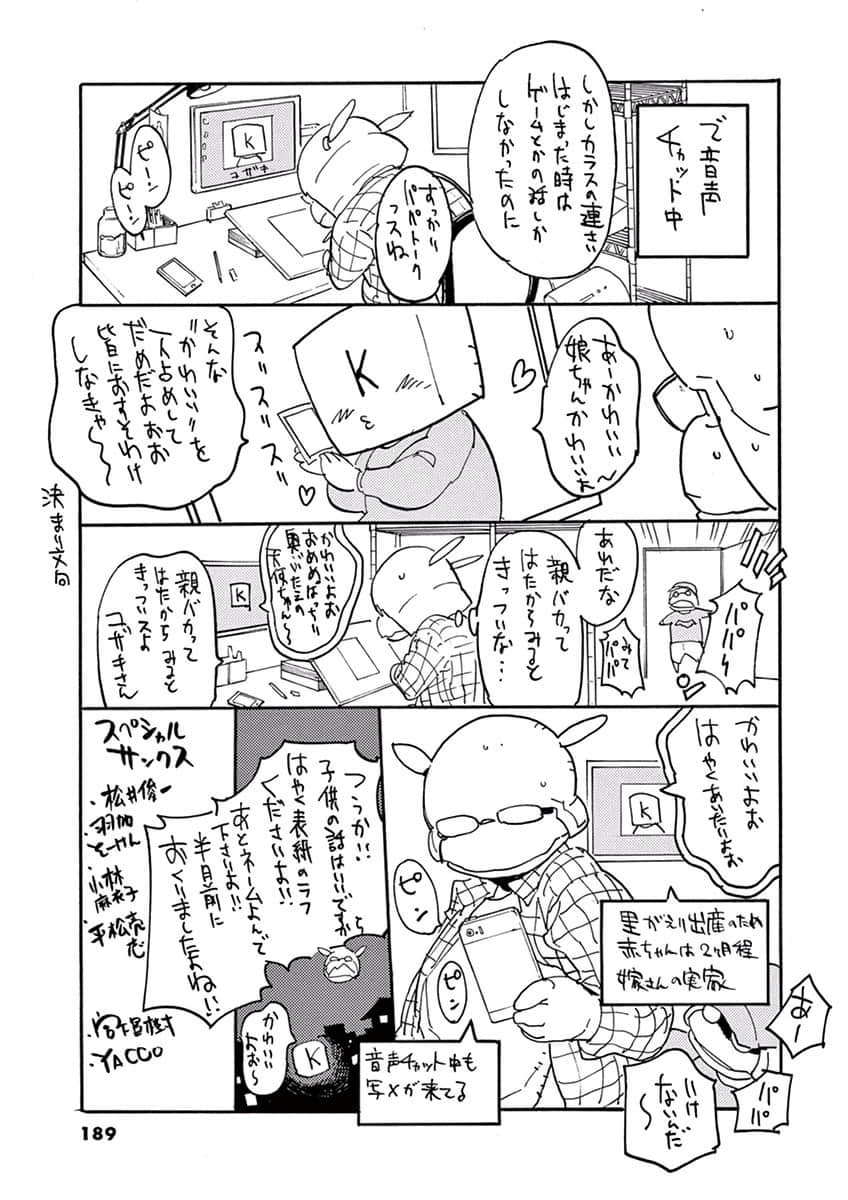 で音声
チャット中
しかしカラスの連さい
はじまった時は
ゲームとかの話しか
しなかったのに
すっかり
パパトーク
っスね
K
コザキ
ピーン
ピーン
あーかわいい〜
娘ちゃんかわいいよ
K
スッスッスッ
そんな
"かわいい"を
一人占めして
だめだよおお
皆におすそわけ
しなきゃ〜〜
決まり文句
パパ〜!!
みて
パパ
あれだな
親バカって
はたからみると
きっついな…
かわいいよお
おめめぱっちり
天使ちゃん〜
K
親バカって
はたからみると
きっついよ
コザキさん
かわいいよお
はやくあいたいよお
K
里がえり出産のため
赤ちゃんは2ヶ月程
嫁さんの実家
ピン
ピン
音声チャット中も
写メが来てる
あー
パパ
いけ
ないんだ
〜
つうか!!
子供の話はいいですから
はやく表紙のラフ
くださいよ!!
あとネームよんで
下さいよ!!
半月前に
おくいましたよね!!
かわいい
よお〜
K
スペシャル
サンクス
・松井俊一
・羽加
とーやん
・小林
麻衣子
・平松亮志
・宮下昌樹
・YACCO
189